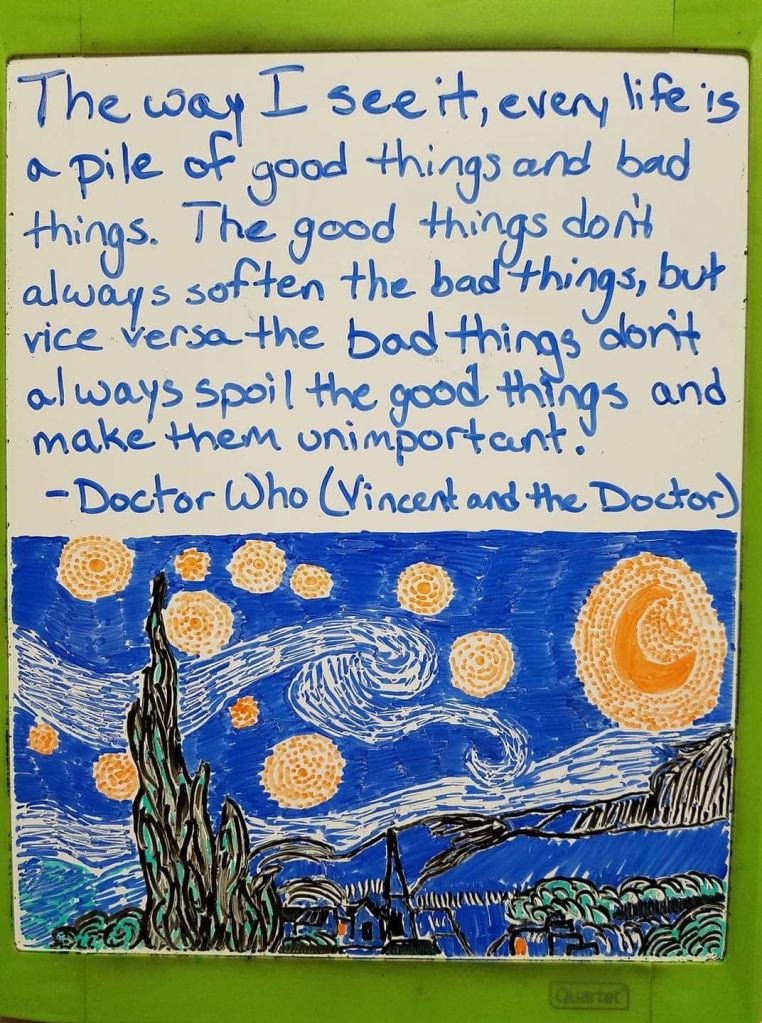 The way I see it, every life is
a pile of good things and bad
things. The good things don't
always soften the bad things, but
vice versa the bad things don't
always spoil the good things and
make them unimportant.
- Doctor Who (Vincent and the Doctor)
Quartet